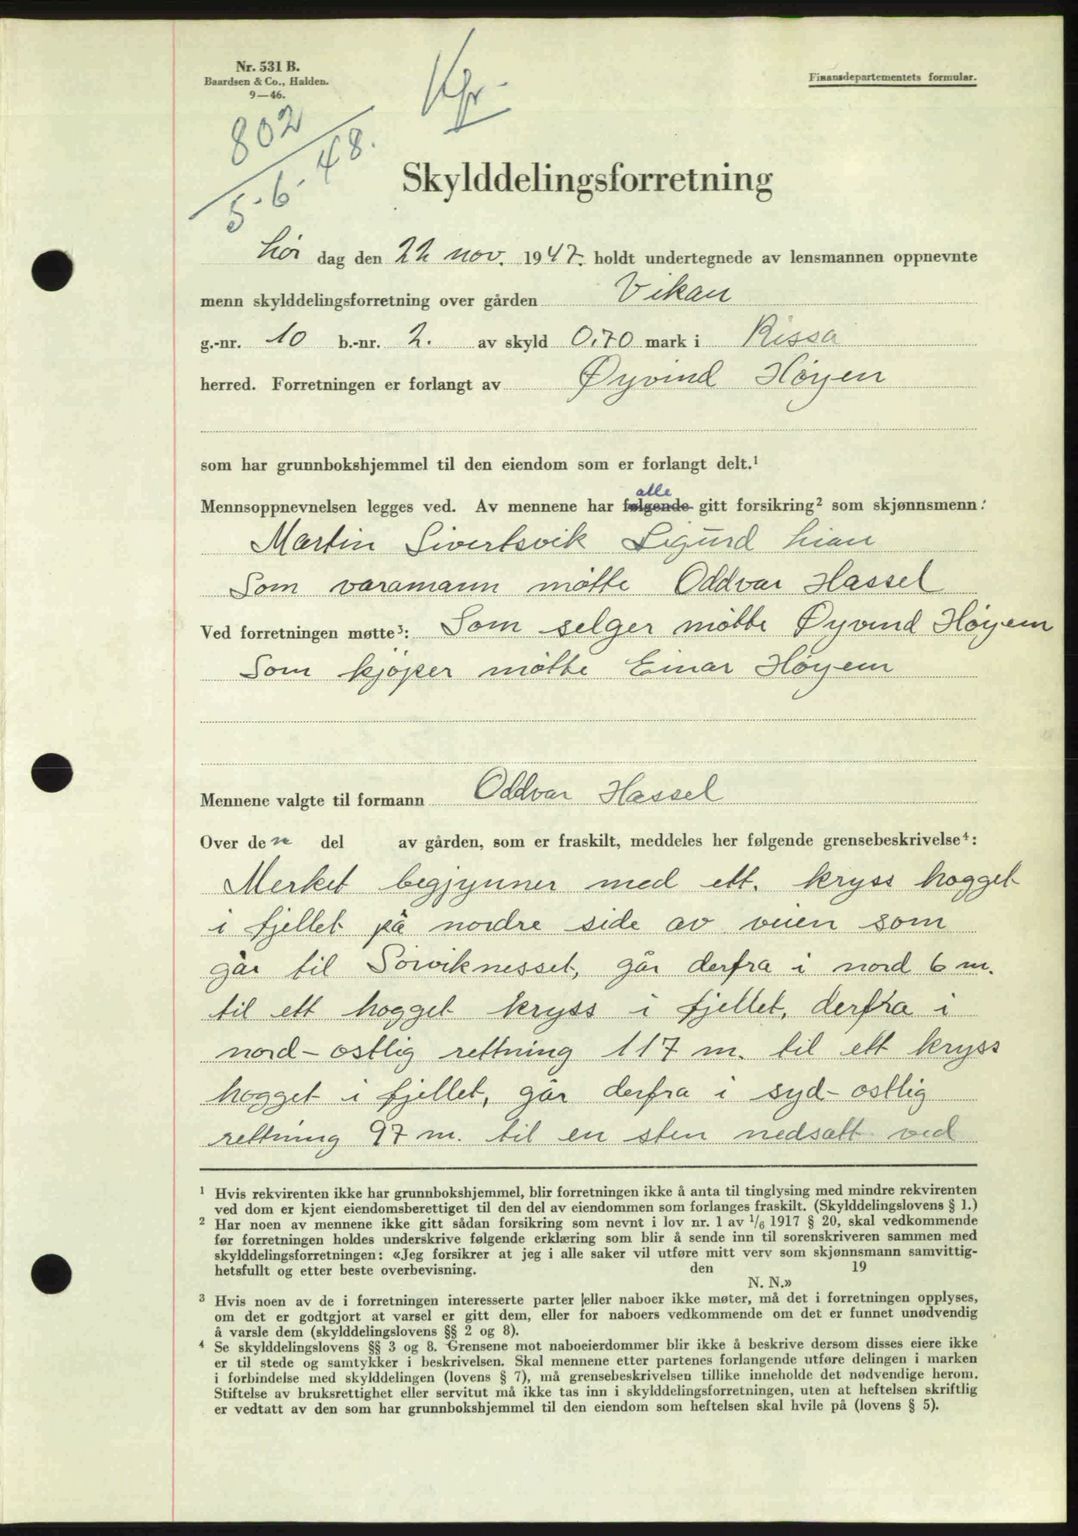 Nr. 531 B.
Baardsen & Co., Halden.
9—46.
Finansdepartementets formular.
802
5-6-48.
Skylddelingsforretning
Lör dag den 22 nov. 1947. holdt undertegnede av lensmannen oppnevnte
menn skylddelingsforretning over gården Vikan
g.-nr. 10 b.-nr. 2. av skyld 0,70 mark i Rissa
herred. Forretningen er forlangt av Øyvind Höyen
som har grunnbokshjemmel til den eiendom som er forlangt delt.¹
alle
Mennsoppnevnelsen legges ved. Av mennene har følgende gitt forsikring² som skjønnsmenn:
Martin Sivertsvik Sigurd Lian
Som varamann mötte Oddvar Hassel
Ved forretningen møtte³: Som selger mötte Øyvind Höyem
Som kjöper mötte Einar Höyem
Mennene valgte til formann Oddvar Hassel
Over den del av gården, som er fraskilt, meddeles her følgende grensebeskrivelse⁴:
Merket begjynner med ett. kryss hogget
i fjellet på nordre side av veien som
går til Sörviknesset, går derfra i nord 6 m.
til ett hogget kryss i fjellet, derfra i
nord-ostlig rettning 117 m. til ett kryss
hogget i fjellet, går derfra i syd-ostlig
rettning 97 m. til en sten nedsatt ved
¹ Hvis rekvirenten ikke har grunnbokshjemmel, blir forretningen ikke å anta til tinglysing med mindre rekvirenten
ved dom er kjent eiendomsberettiget til den del av eiendommen som forlanges fraskilt. (Skylddelingslovens § 1.)
² Har noen av mennene ikke gitt sådan forsikring som nevnt i lov nr. 1 av 1/6 1917 § 20, skal vedkommende
før forretningen holdes underskrive følgende erklæring som blir å sende inn til sorenskriveren sammen med
skylddelingsforretningen: «Jeg forsikrer at jeg i alle saker vil utføre mitt verv som skjønnsmann samvittig-
hetsfullt og etter beste overbevisning. den 19
N. N.»
³ Hvis noen av de i forretningen interesserte parter eller naboer ikke møter, må det i forretningen opplyses,
om det er godtgjort at varsel er gitt dem, eller for naboers vedkommende om det er funnet unødvendig
å varsle dem (skylddelingslovens §§ 2 og 8).
⁴ Se skylddelingslovens §§ 3 og 8. Grensene mot naboeierdommer blir ikke å beskrive dersom disses eiere ikke
er til stede og samtykker i beskrivelsen. Skal mennene etter partenes forlangende utføre delingen i marken
i forbindelse med skylddelingen (lovens § 7), må grensebeskrivelsen tillike inneholde det nødvendige herom.
Stiftelse av bruksrettighet eller servitut må ikke tas inn i skylddelingsforretningen, uten at heftelsen skriftlig
er vedtatt av den som har grunnbokshjemmel til den eiendom som heftelsen skal hvile på (lovens § 5).